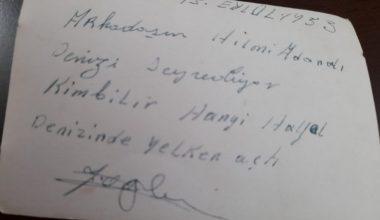 15. EYLÜL 1953
Arkadaşım Hilmi Adandı
Denizi Seyrediyor
Kimbilir Hangi Hayal
Denizinde yelken açtı